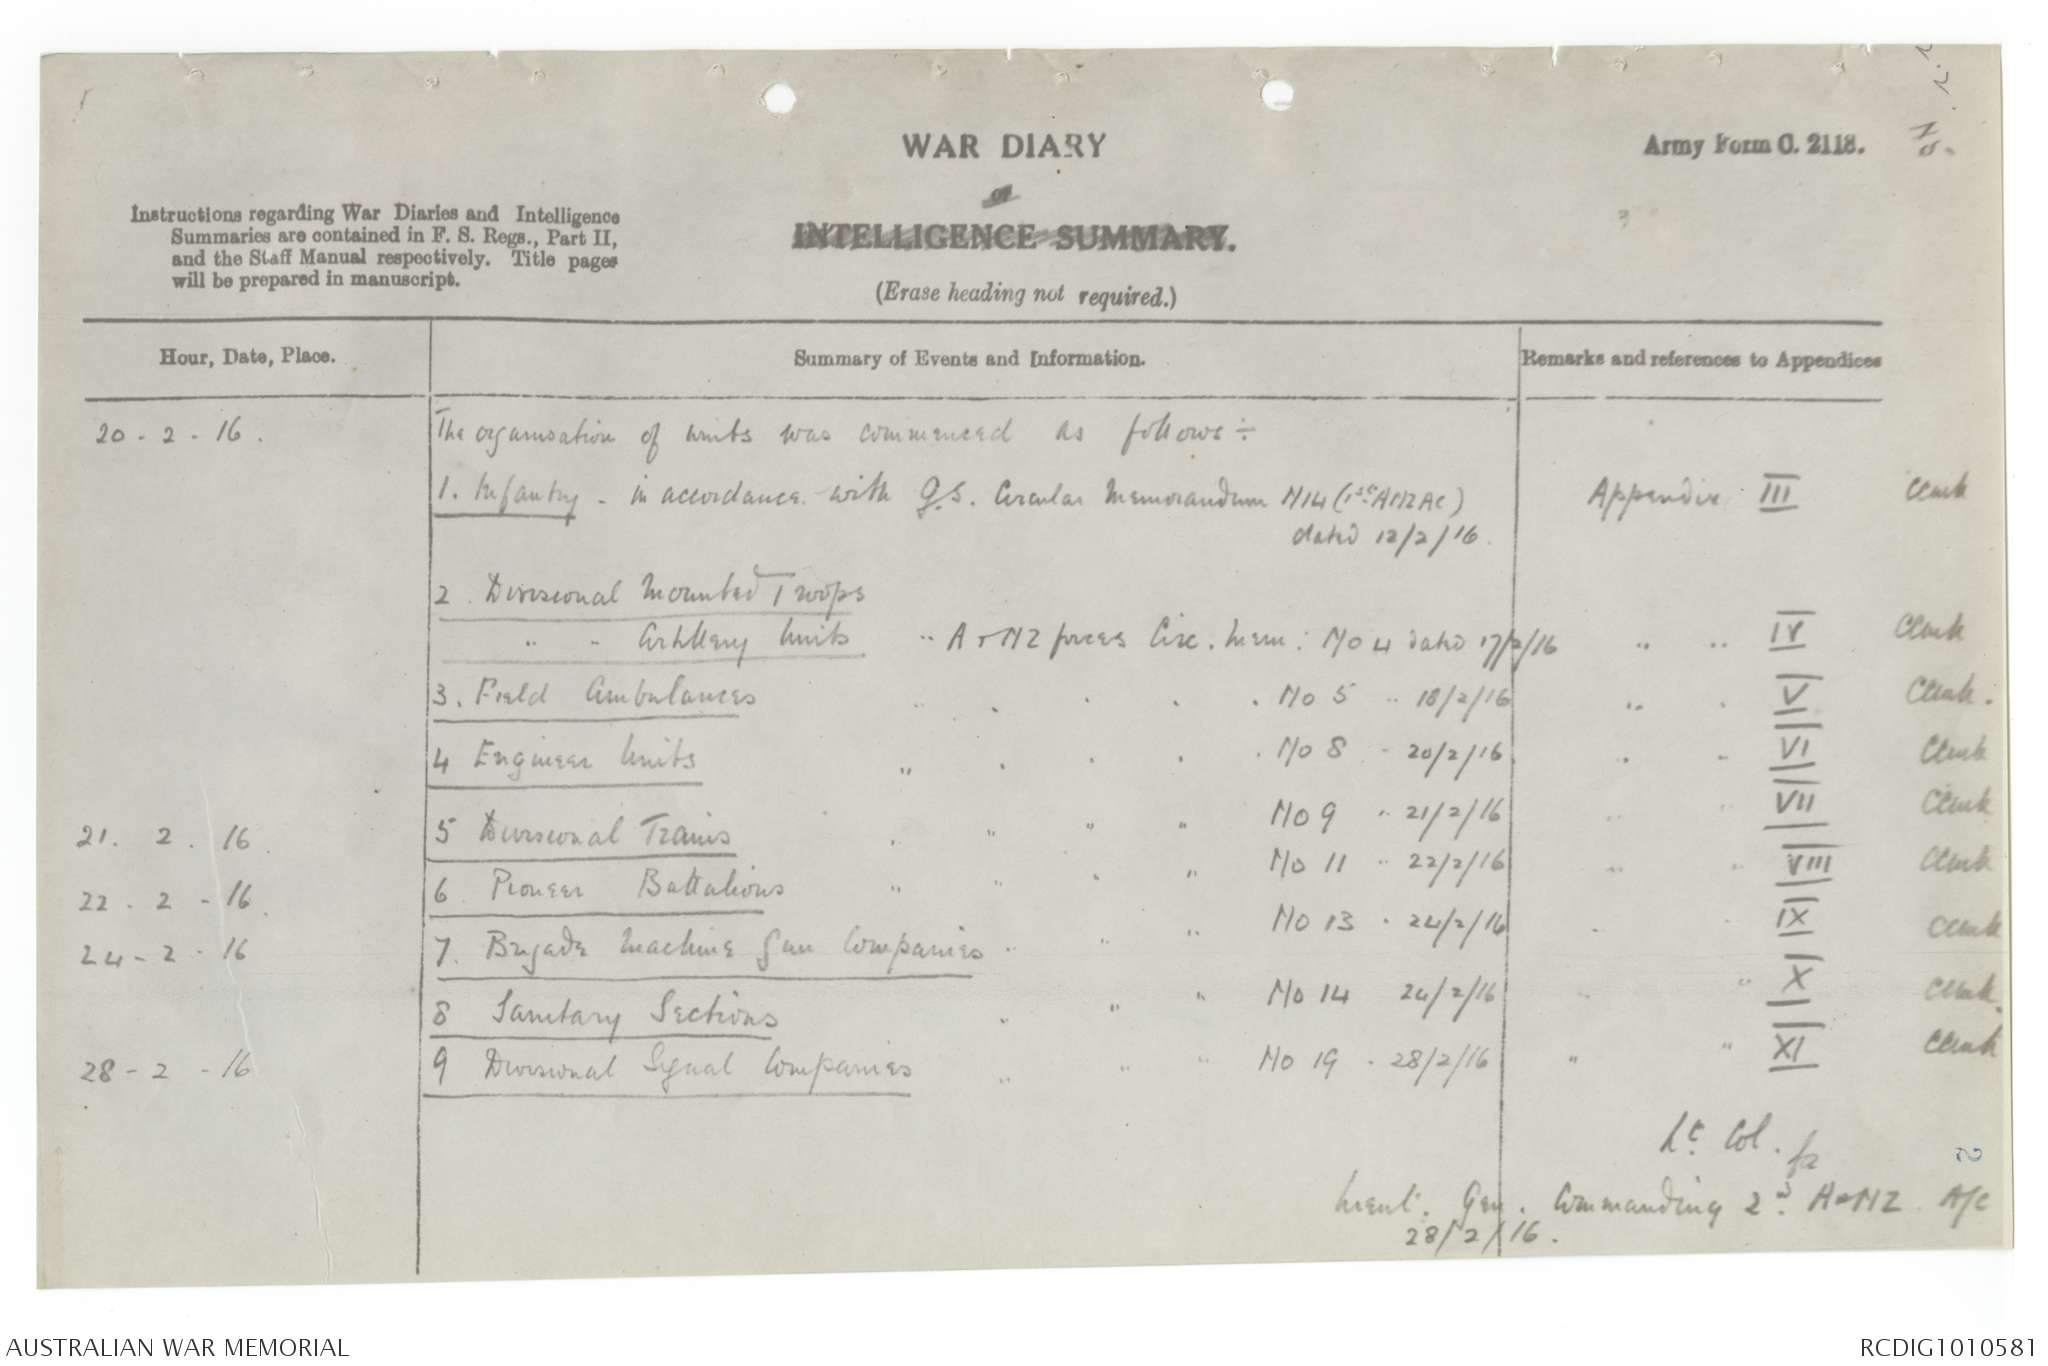 WAR DIARY
or
INTELLIGENCE SUMMARY.
(Erase heading not required.)
Army Form C. 2118.
No.
Instructions regarding War Diaries and Intelligence
Summaries are contained in F. S. Regs., Part II,
and the Staff Manual respectively. Title pages
will be prepared in manuscript.
Hour, Date, Place. Summary of Events and Information. Remarks and references to Appendices
20 - 2 - 16. The organisation of units was commenced as follows :-
1. Infantry - in accordance with G.S. Circular Memorandum N14 (1st ANZAC) Appendix III
dated 12/2/16.
2. Divisional Mounted Troops
" " Artillery Units " A & NZ forces Circ. Mem: No 4 dated 17/2/16 " " IV
3. Field Ambulances " " " " " No 5 " 18/2/16 " " V
4 Engineer Units " " " " " No 8 - 20/2/16 " " VI
21. 2. 16 5 Divisional Trains " " " " No 9 " 21/2/16 " " VII
22 - 2 - 16 6 Pioneer Battalions " " " " No 11 " 22/2/16 " " VIII
24 - 2 - 16 7. Brigade Machine Gun Companies " " " No 13 " 24/2/16 " " IX
8 Sanitary Sections " " " No 14 24/2/16 " " X
28 - 2 - 16 9 Divisional Signal Companies " " " No 19 - 28/2/16 " " XI
Lt. Col. for
Lieut. Gen. Commanding 2nd A & NZ A/C
28/2/16.
AUSTRALIAN WAR MEMORIAL
RCDIG1010581